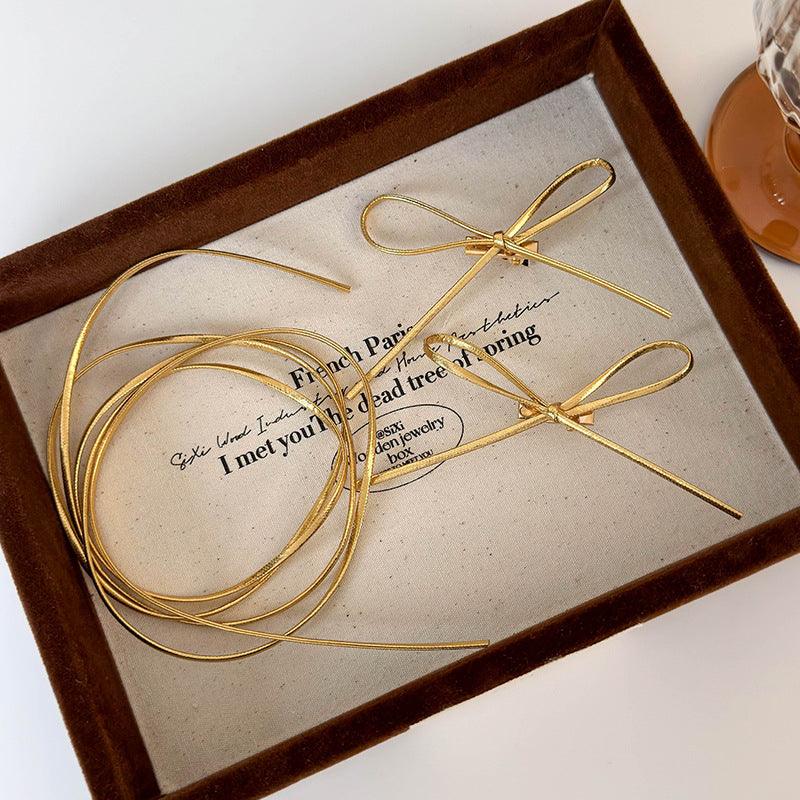 French Paris
SiXi Wood Industry and Home Aesthetics
I met youThe dead tree of voring
@SiXi
wooden jewelry
box
TO MEET YOU